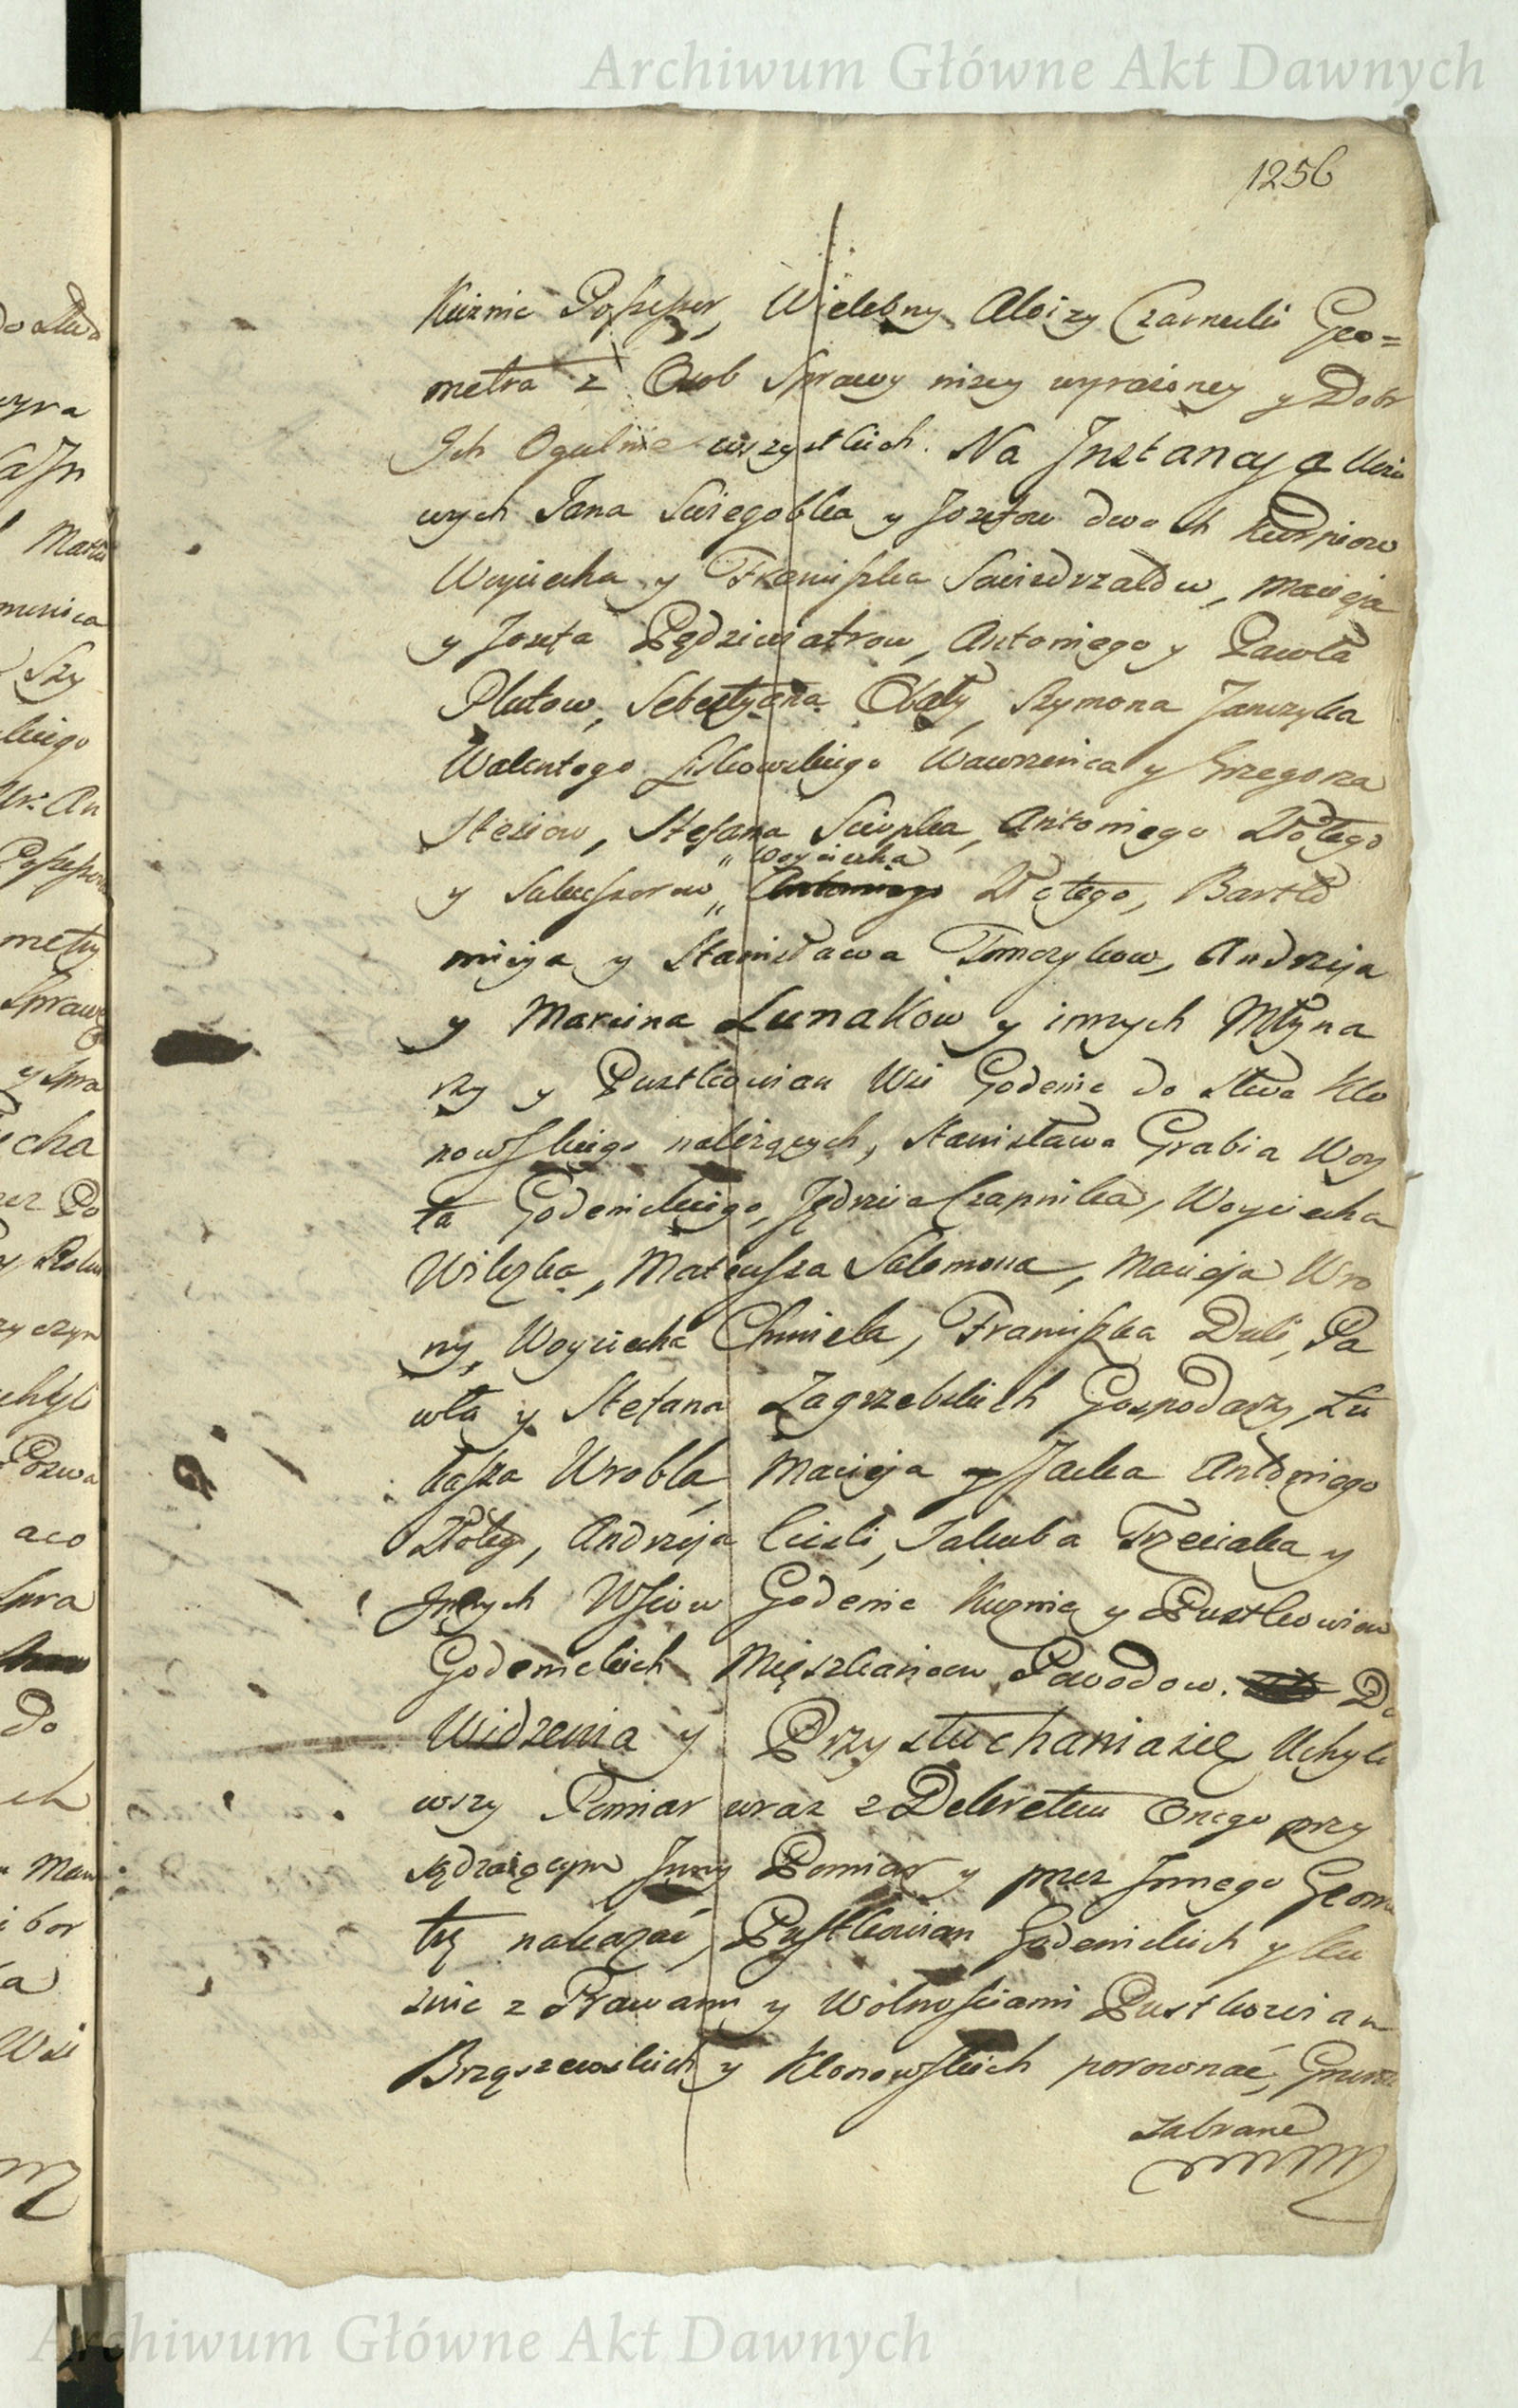 Archiwum Główne Akt Dawnych
1256
Kuznic Possessor, Wielebny Aloizy Czarnecki Geo=
metra z Osob Sprawy nizey wyrażoney y Dobr
Ich Ogulnie wszystkich. Na Instancyą Ucci
wych Jana Sciegoblka y Jozefow dwoch Kurpiow
Woyciecha y Franciszka Swierdrzałow, Macieja
y Jozefa Pędziwiatrow, Antoniego y Pawła
Plutow, Sebestyana Obały, Szymona Janczyka
Walentego Liskowskiego Wawrzenca y Grzegorza
Stesiow, Stefana Sciopka, Antoniego Złotego
y Sukcessorow " Woyciecha
Antoniego Złotego, Bartło
mieja y Stanisława Tomczykow, Andrzeja
y Marcina Łunakow y innych Młyna
rzy y Pustkowian Wsi Godenic do Stwa Klo
nowskiego należących, Stanisława Grabia Woy
ta Godenickiego, Jędrzeia Czapnika, Woyciecha
Wilczka, Mateusza Salomona, Macieja Wro
ny, Woyciecha Chmiela, Franciszka Duli, Pa
wła y Stefana Zagrzebskich Gospodarzy, Łu
kasza Wrobla, Macieja y Jacka Antoniego
Złotey, Andrzeja Ciesli, Jakuba Trzeciaka y
Innych Wsiow Godenic Kuznic y Pustkowiow
Godenickich Mieszkancow Powodow. Do
Widzenia y Przysłuchania się Uchyli
wszy Pomiar wraz z Dekretem Onego przy
sądzaiącym Inny Pomiar y przez Innego Geome
trę nakazać, Pustkowian Godenickich y Ku
znic z Prawami y Wolnosciami Pustkowian
Brzęszewskich y Klonowskich porownać, Grunta
zabrane
Archiwum Główne Akt Dawnych